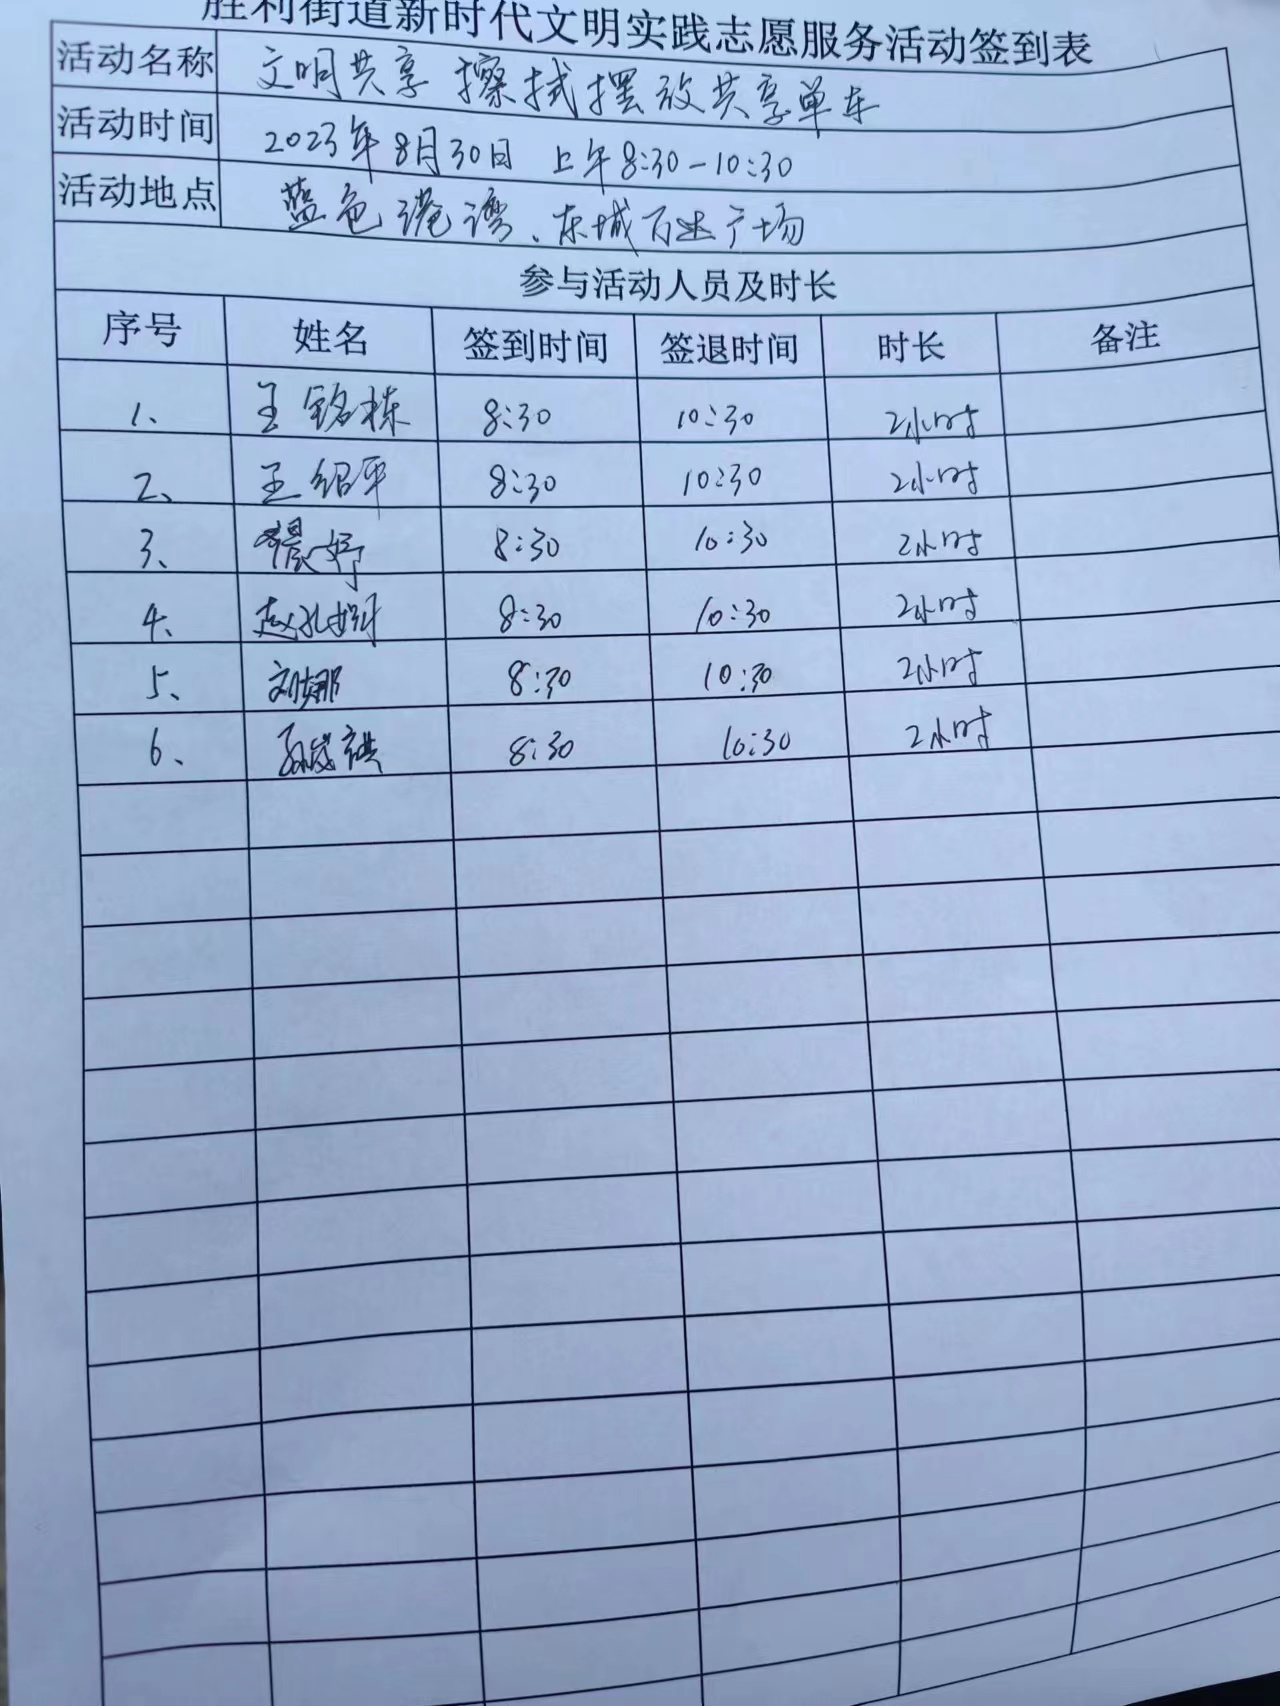 胜利街道新时代文明实践志愿服务活动签到表
活动名称 文明共享 擦拭摆放共享单车
活动时间 2023年8月30日 上午8:30-10:30
活动地点 蓝色港湾、东城万达广场
参与活动人员及时长
序号 姓名 签到时间 签退时间 时长 备注
1、 王铭栋 8:30 10:30 2小时
2、 王绍平 8:30 10:30 2小时
3、 8:30 10:30 2小时
4、 赵 8:30 10:30 2小时
5、 刘娜 8:30 10:30 2小时
6、 孙 8:30 10:30 2小时